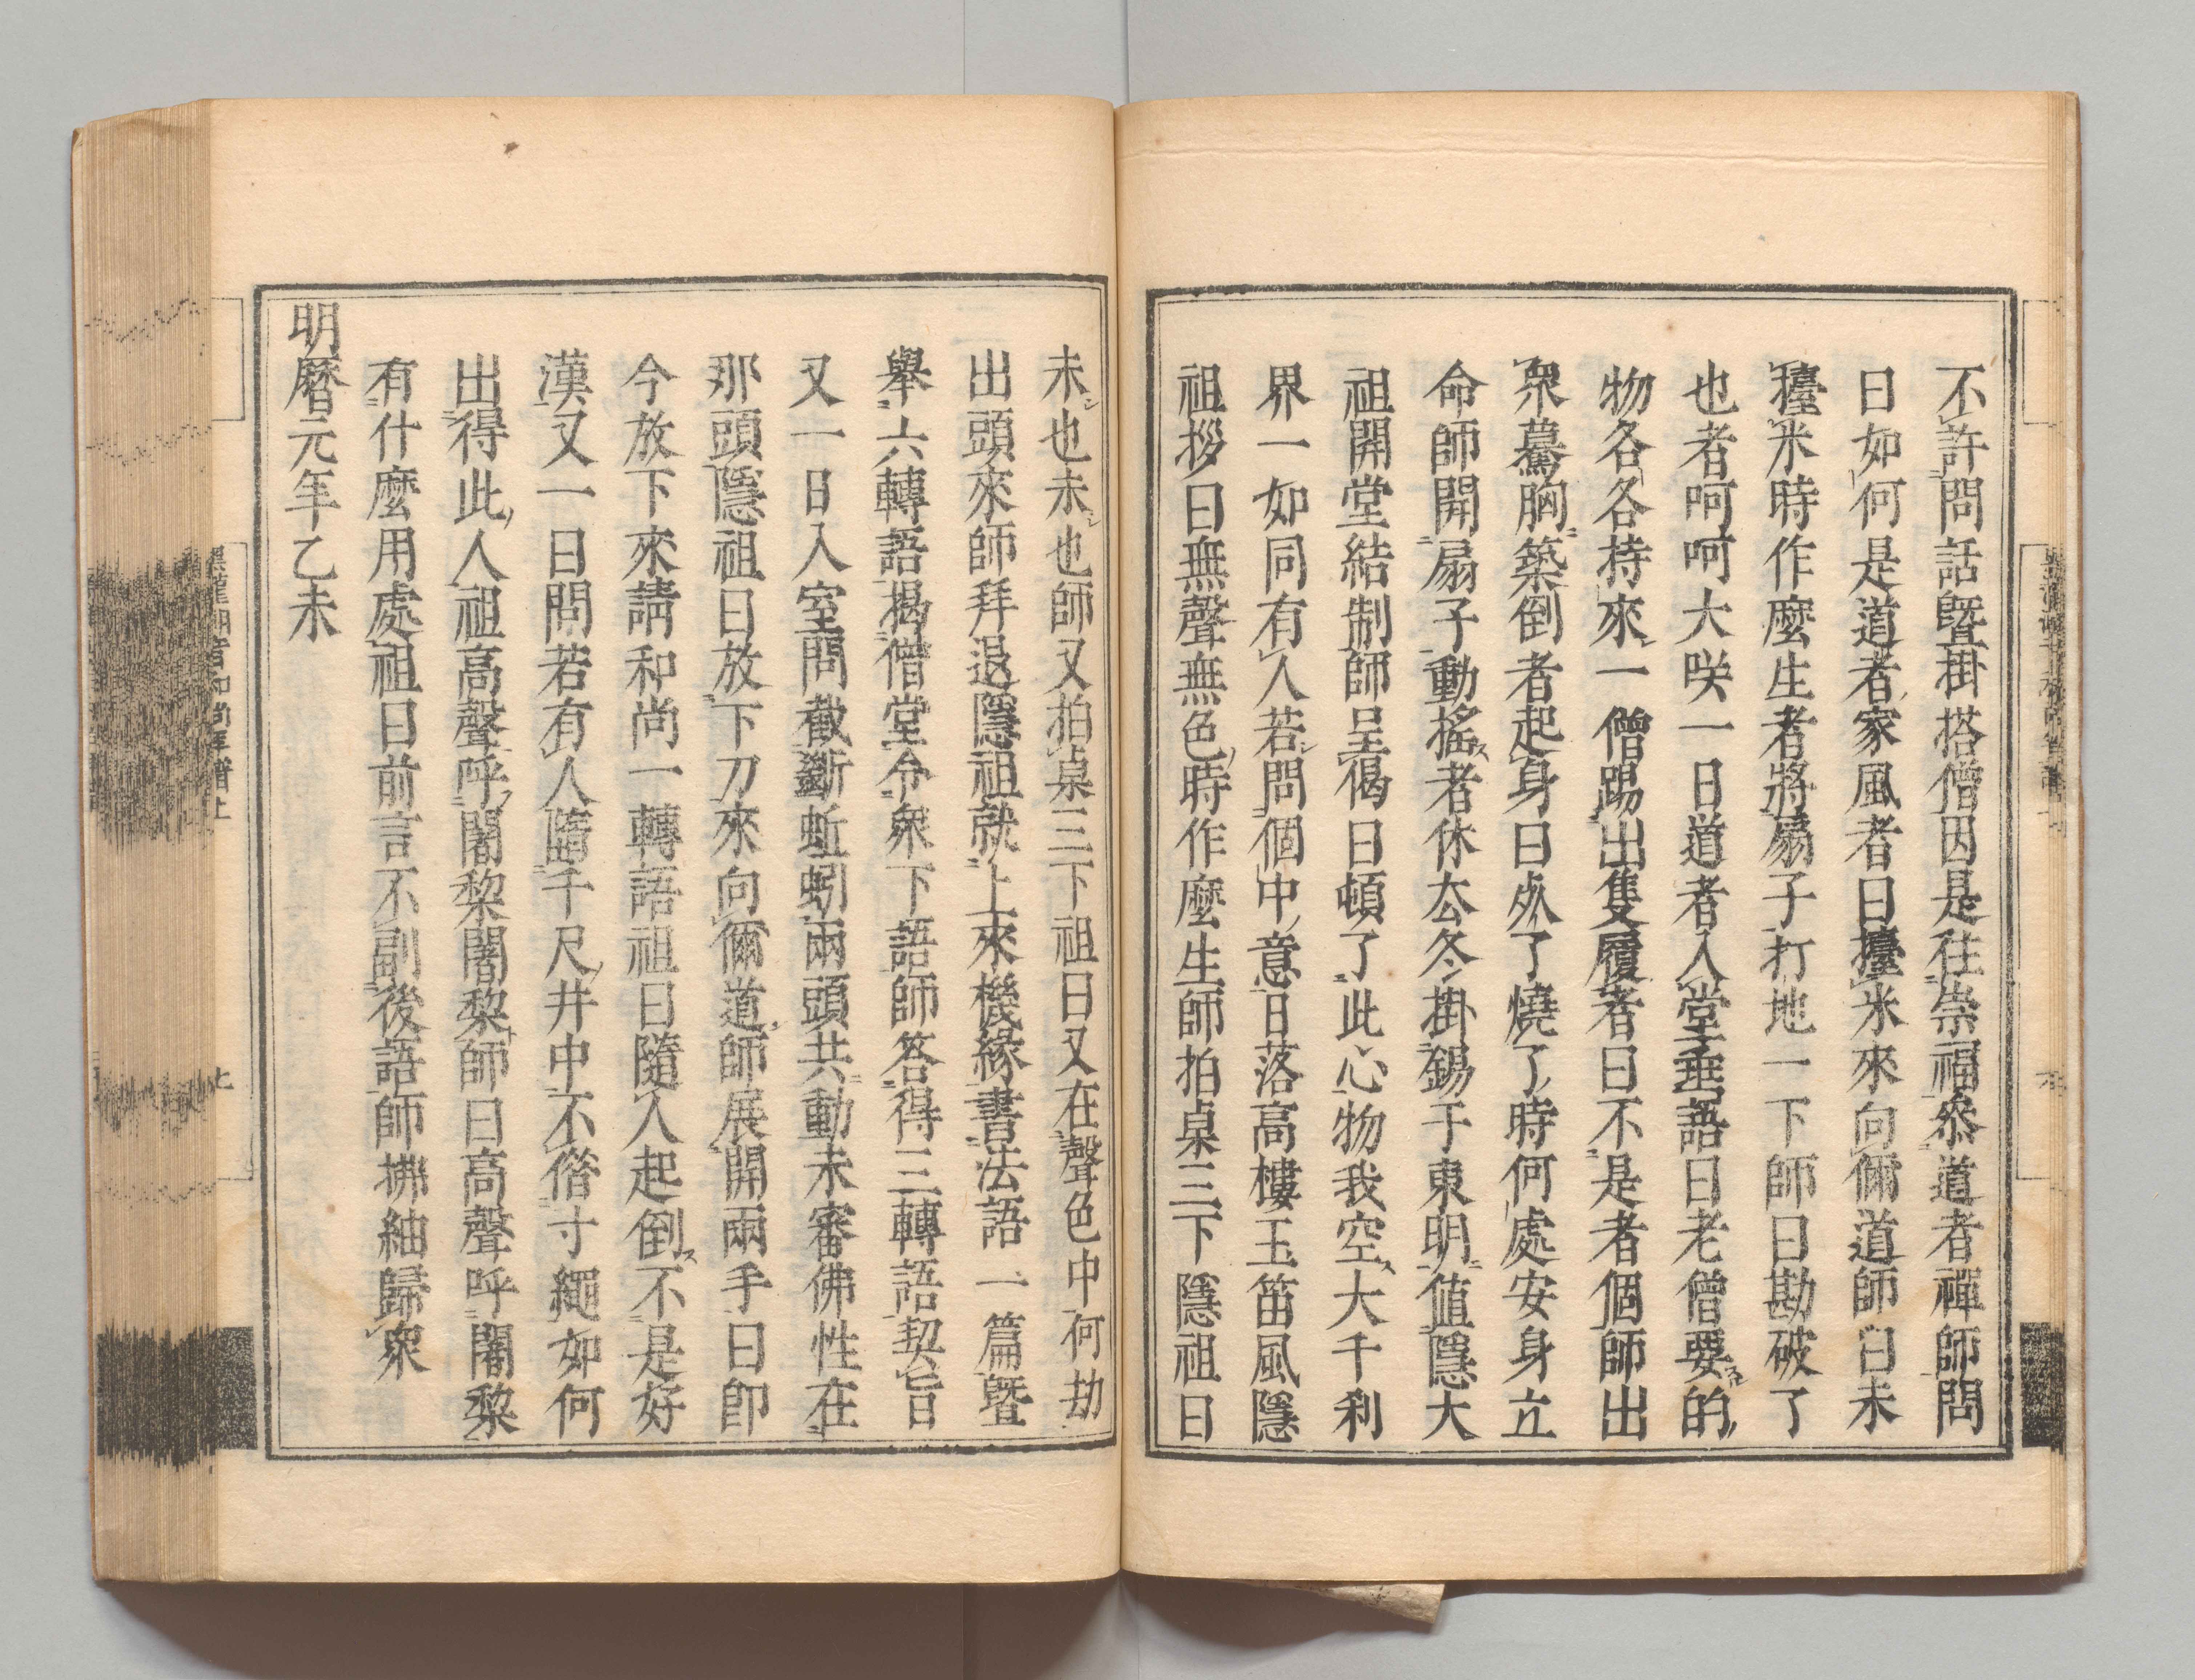 不許問話曁掛搭僧因是往崇福叅道者禪師問
曰如何是道者家風者曰擡米來向儞道師曰未
擡米時作麼生者將扇子打地一下師曰勘破了
也者呵呵大咲一日道者入堂垂語曰老僧要的
物各各持來一僧踢出隻履者曰不是者個師出
衆驀胸築倒者起身曰死了燒了時何處安身立
命師開扇子動搖者休去冬掛錫于東明値隱大
祖開堂結制師呈偈曰頓了此心物我空大千刹
界一如同有人若問個中意日落高樓玉笛風隱
祖拶曰無聲無色時作麼生師拍桌三下隱祖曰
未也未也師又拍桌三下祖曰又在聲色中何劫
出頭來師拜退隱祖就上來機緣書法語一篇曁
舉六轉語揭僧堂令衆下語師答得三轉語契旨
又一日入室問截斷蚯蚓兩頭共動未審佛性在
那頭隱祖曰放下刀來向儞道師展開兩手曰卽
今放下來請和尚一轉語祖曰隨人起倒不是好
漢又一日問若有人墮千尺井中不偺寸繩如何
出得此人祖高聲呼闍黎闍黎師曰高聲呼闍黎
有什麼用處祖曰前言不副後語師拂紬歸衆
明曆元年乙未
和尚年譜上